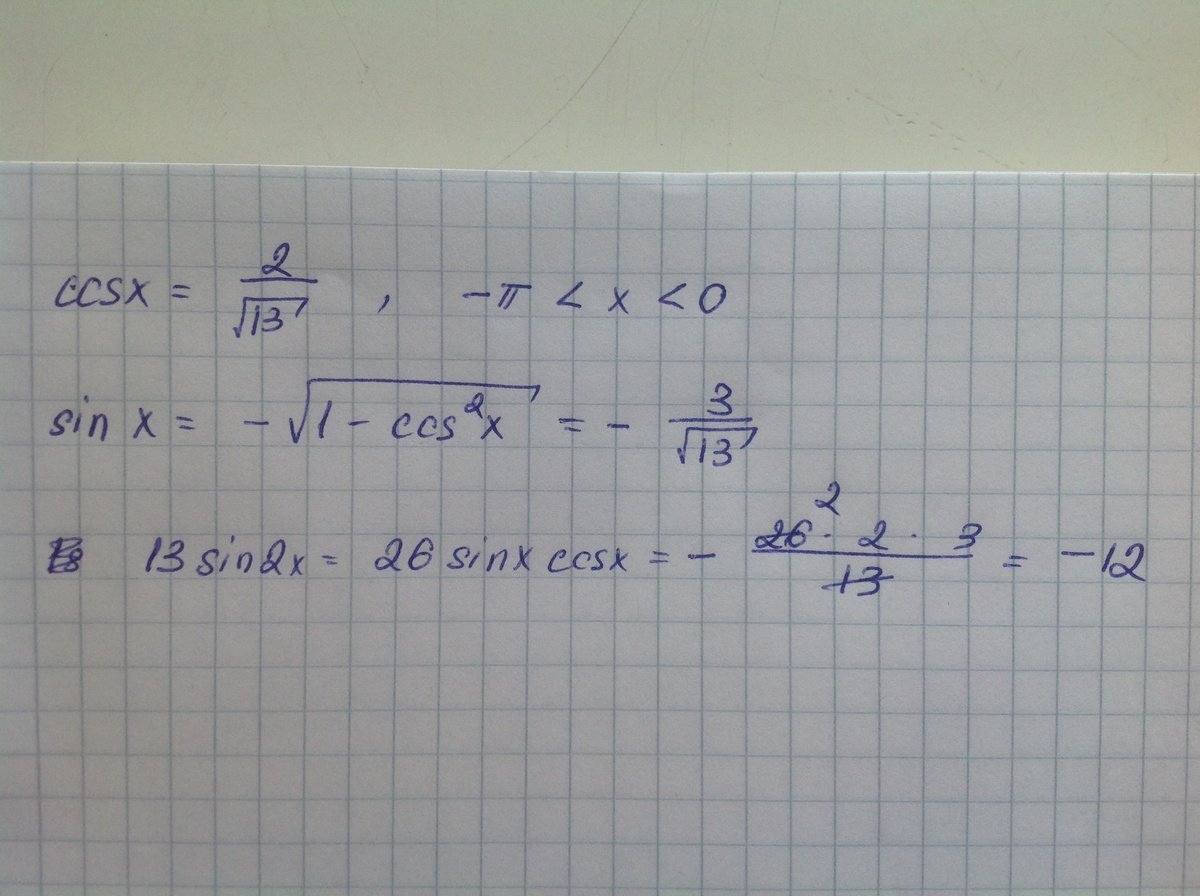 cosx = 2/√13 , -π < x < 0
sin x = -√(1 - cos²x) = - 3/√13
13 sin2x = 26 sinx cosx = - (26² · 2 · 3)/13 = -12